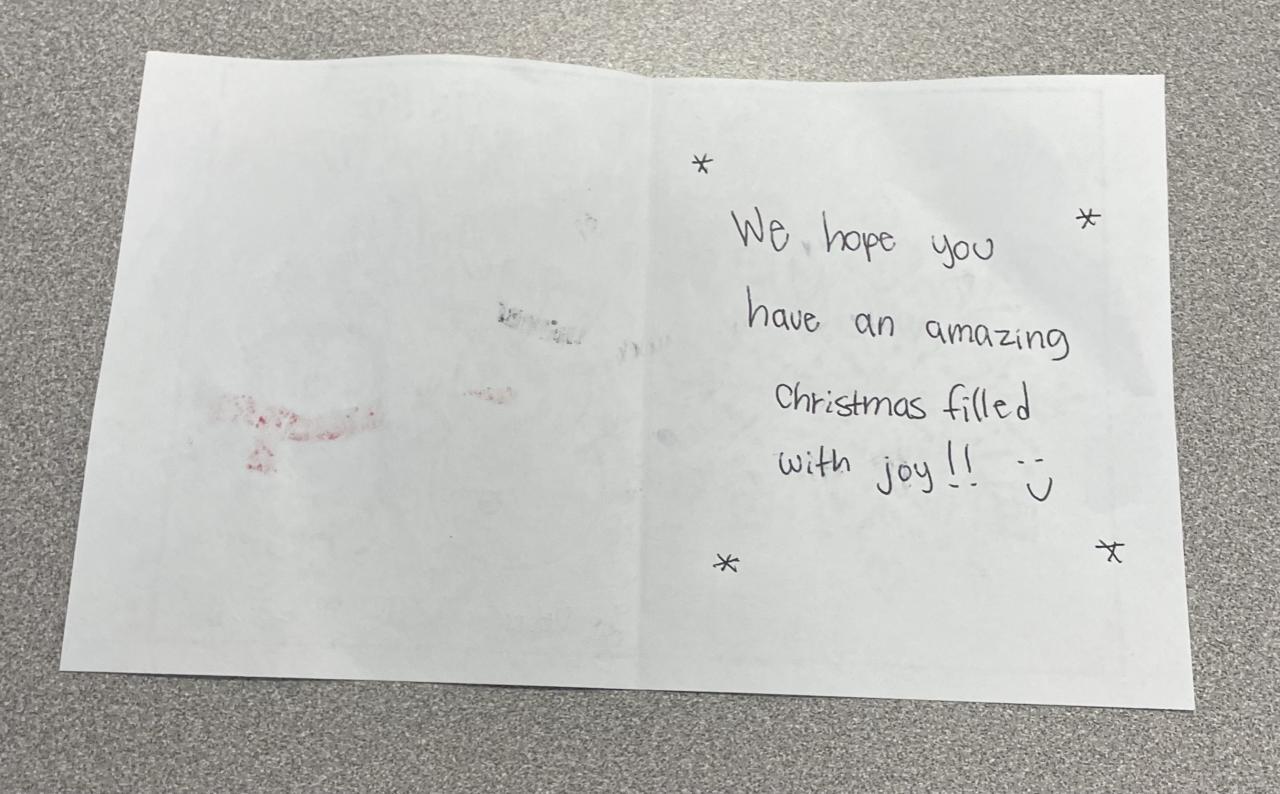 We hope you
have an amazing
Christmas filled
with joy!! :)